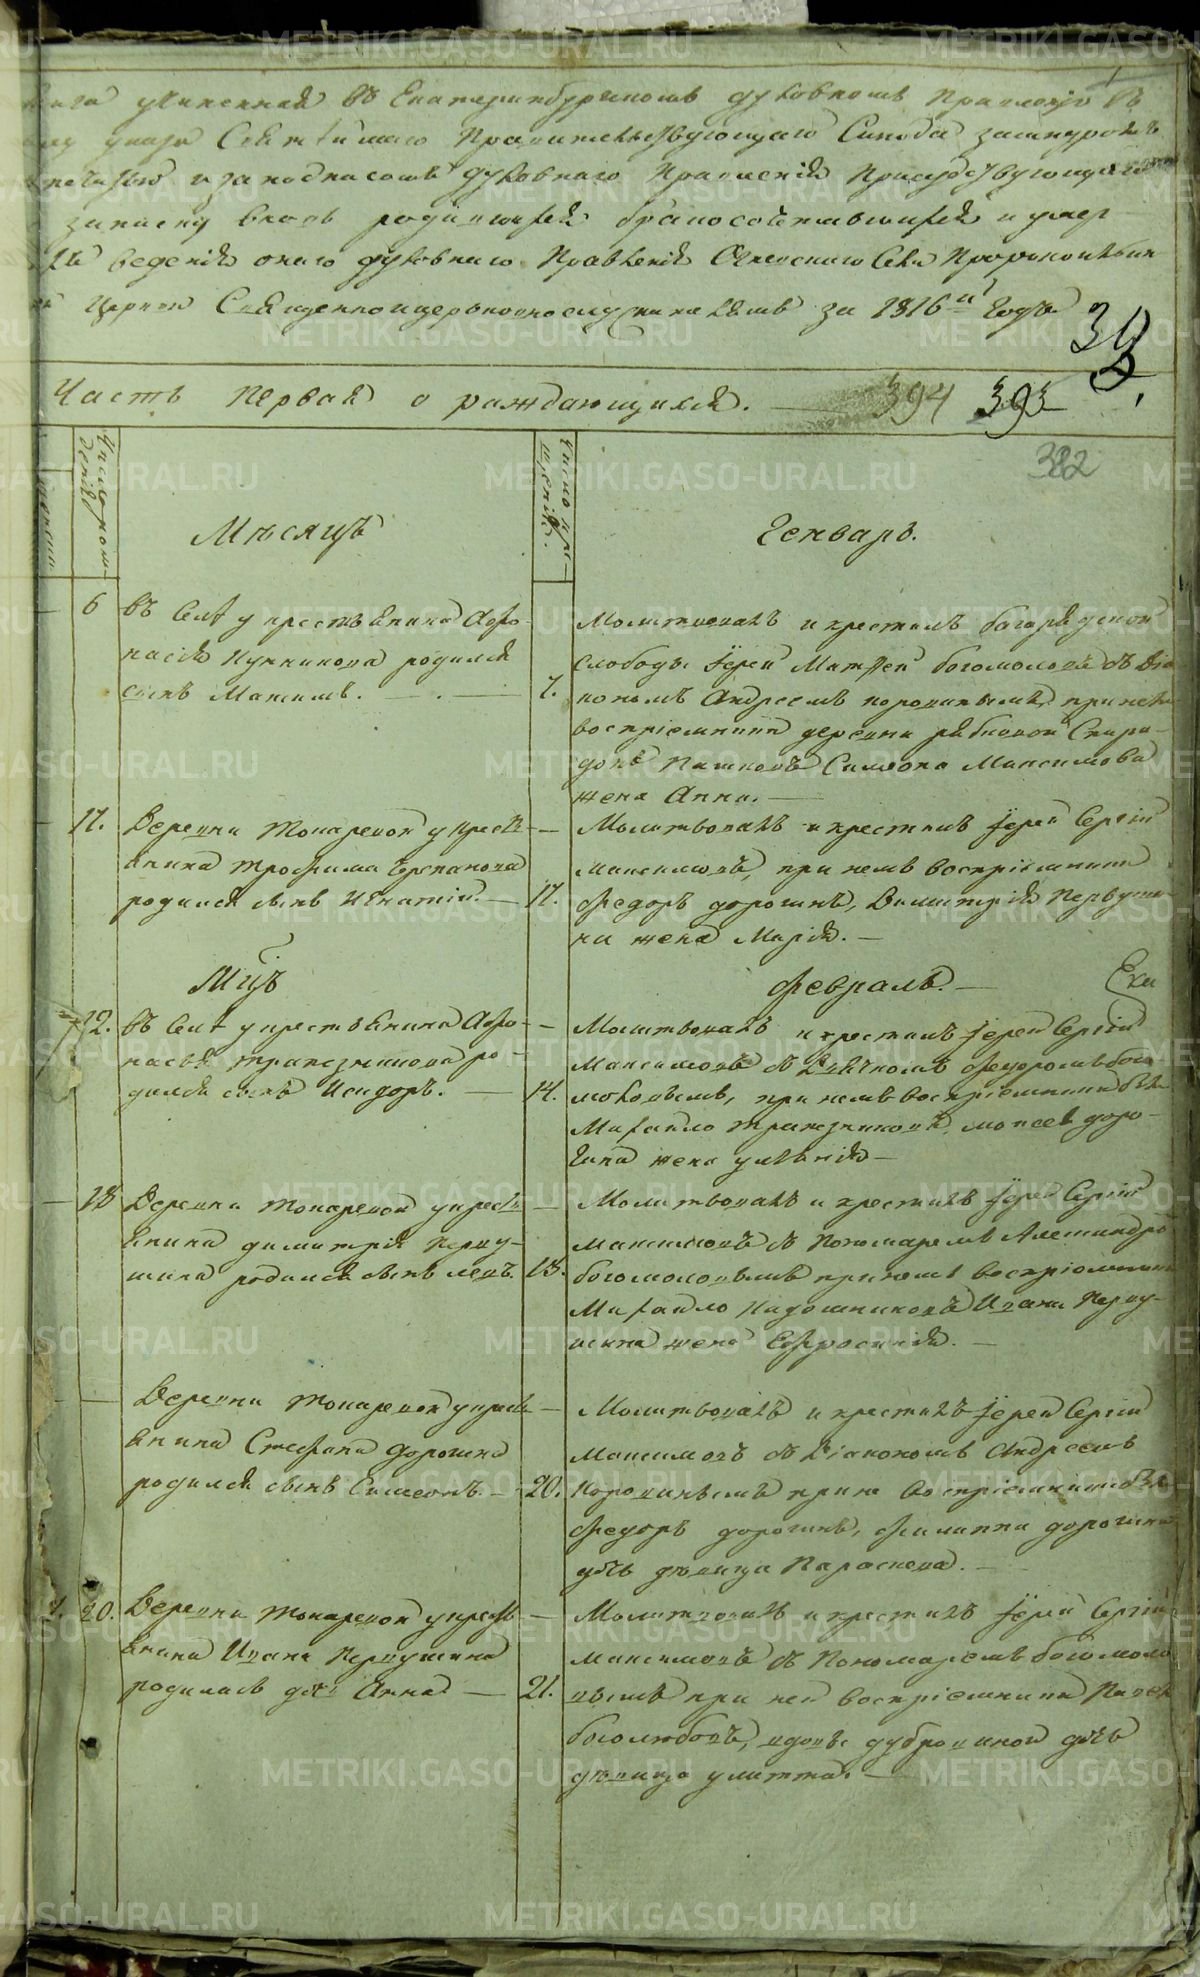 METRIKI.GASO-URAL.RU
книга учиненная въ Екатеринбургскомъ духовномъ правленіи въ
указа Святѣйшаго Правительствующаго Синода за шнуромъ
печатью и за подписомъ духовнаго правленія присудствующаго
записку вновь родившихся бракосочетавшихся и умер-
вѣденія онаго духовнаго правленія села Пророкоильин
церкви Священноицерковнослужителямъ за 1816й Годъ
39
Часть первая о раждающихся. 394 393
382
Число рож-
денія
Число кре-
щенія.
Мѣсяцъ
Генварь.
6
въ селѣ у крестьянина Афо-
насія родился
сынъ Максимъ.
7.
Молитвовалъ и крестилъ
слободы Іерей Матѳей Богомоловъ съ Діа
кономъ Андреемъ Коровинымъ, при немъ
воспріемники деревни Рябковой Спири-
донъ Пашковъ Симеона Максимова
жена Анна.
17.
Деревни Токаревой у крестья
нина Трофима Черепанова
родился сынъ Игнатій.
17.
Молитвовалъ и крестилъ Іерей Сергій
Максимовъ, при немъ воспріемники
Федоръ Дорогинъ, Димитрія Первуши-
на жена Марія.
Мцъ
Февраль.
12.
въ селѣ у крестьянина Афо-
насья Трапезникова ро-
дился сынъ Исидоръ.
14.
Молитвовалъ и крестилъ Іерей Сергій
Максимовъ съ Дьячкомъ Федоромъ Бого-
моловымъ, при немъ воспріемники были
Михайло Трапезниковъ, Моисея Доро-
гина жена Улѣянія
18
Деревни Токаревой у кресть
янина Димитрія Перву-
шина родился сынъ Левъ.
18.
Молитвовалъ и крестилъ Іерей Сергій
Максимовъ съ Пономаремъ Александро
Богомоловымъ при немъ воспріемники
Михайло Кадошниковъ Ивана Перву-
шина жена Ефросинія.
Деревни Токаревой у кресть
янина Стефана Дорогина
родился сынъ Симеонъ.
20.
Молитвовалъ и крестилъ Іерей Сергій
Максимовъ съ Діакономъ Андреемъ
Коровинымъ при не воспріемники были
Федоръ Дорогинъ, Филиппа Дорогина
дочь дѣвица Параскева.
20.
Деревни Токаревой у кресть
янина Ивана Первушина
родилась дочь Анна.
21.
Молитвовалъ и крестилъ Іерей Сергій
Максимовъ съ Пономаремъ Богомоло
вымъ при ней воспріемники Павелъ
Боголюбовъ, вдовы Дубровиной дочь
дѣвица Улитта.